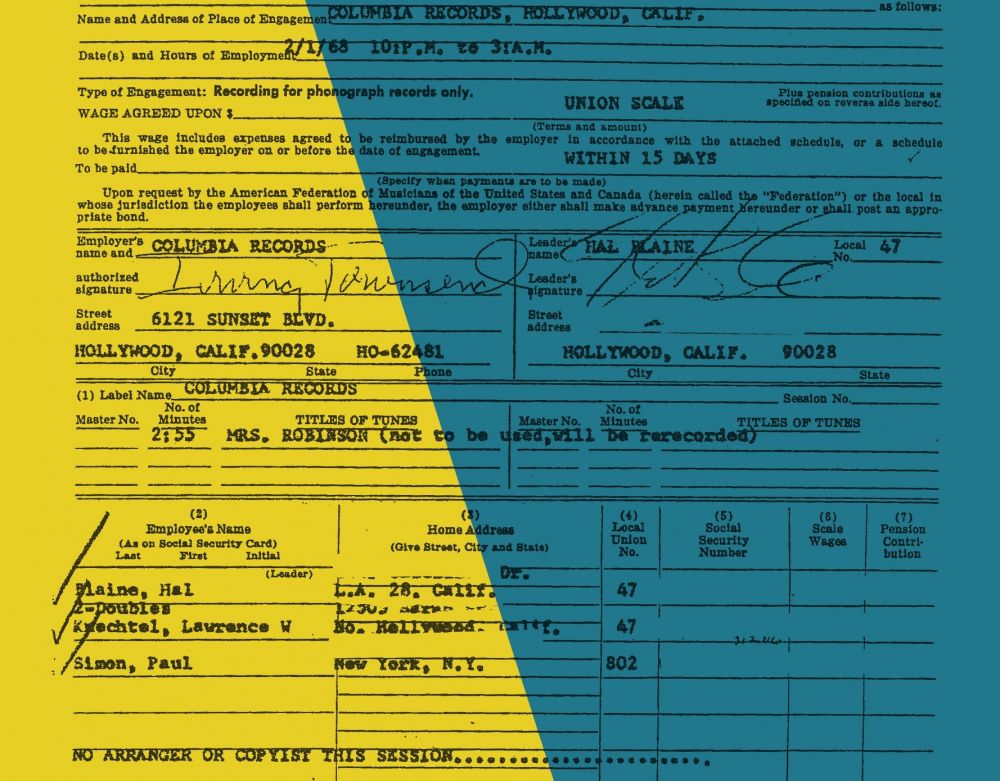 as follows:
Name and Address of Place of Engagement COLUMBIA RECORDS, HOLLYWOOD, CALIF.
Date(s) and Hours of Employment 2/1/68 10:P.M. to 3:A.M.
Type of Engagement: Recording for phonograph records only.
Plus pension contributions as
specified on reverse side hereof.
WAGE AGREED UPON $ UNION SCALE
(Terms and amount)
This wage includes expenses agreed to be reimbursed by the employer in accordance with the attached schedule, or a schedule
to be furnished the employer on or before the date of engagement.
To be paid WITHIN 15 DAYS
(Specify when payments are to be made)
Upon request by the American Federation of Musicians of the United States and Canada (herein called the "Federation") or the local in
whose jurisdiction the employees shall perform hereunder, the employer either shall make advance payment hereunder or shall post an appro-
priate bond.
Employer's
name and COLUMBIA RECORDS
authorized
signature Irving Townsend
Street
address 6121 SUNSET BLVD.
HOLLYWOOD, CALIF. 90028 HO-62481
City State Phone
Leader's
name HAL BLAINE Local
No. 47
Leader's
signature
Street
address
HOLLYWOOD, CALIF. 90028
City State
(1) Label Name COLUMBIA RECORDS Session No.
Master No. No. of
Minutes TITLES OF TUNES Master No. No. of
Minutes TITLES OF TUNES
2:55 MRS. ROBINSON (not to be used, will be rerecorded)
(2)
Employee's Name
(As on Social Security Card)
Last First Initial
(3)
Home Address
(Give Street, City and State)
(4)
Local
Union
No.
(5)
Social
Security
Number
(6)
Scale
Wages
(7)
Pension
Contri-
bution
(Leader) Dr.
Blaine, Hal L.A. 28, Calif. 47
2-Doubles
Knechtel, Lawrence W No. Hollywood. Calif. 47
Simon, Paul New York, N.Y. 802
NO ARRANGER OR COPYIST THIS SESSION........................